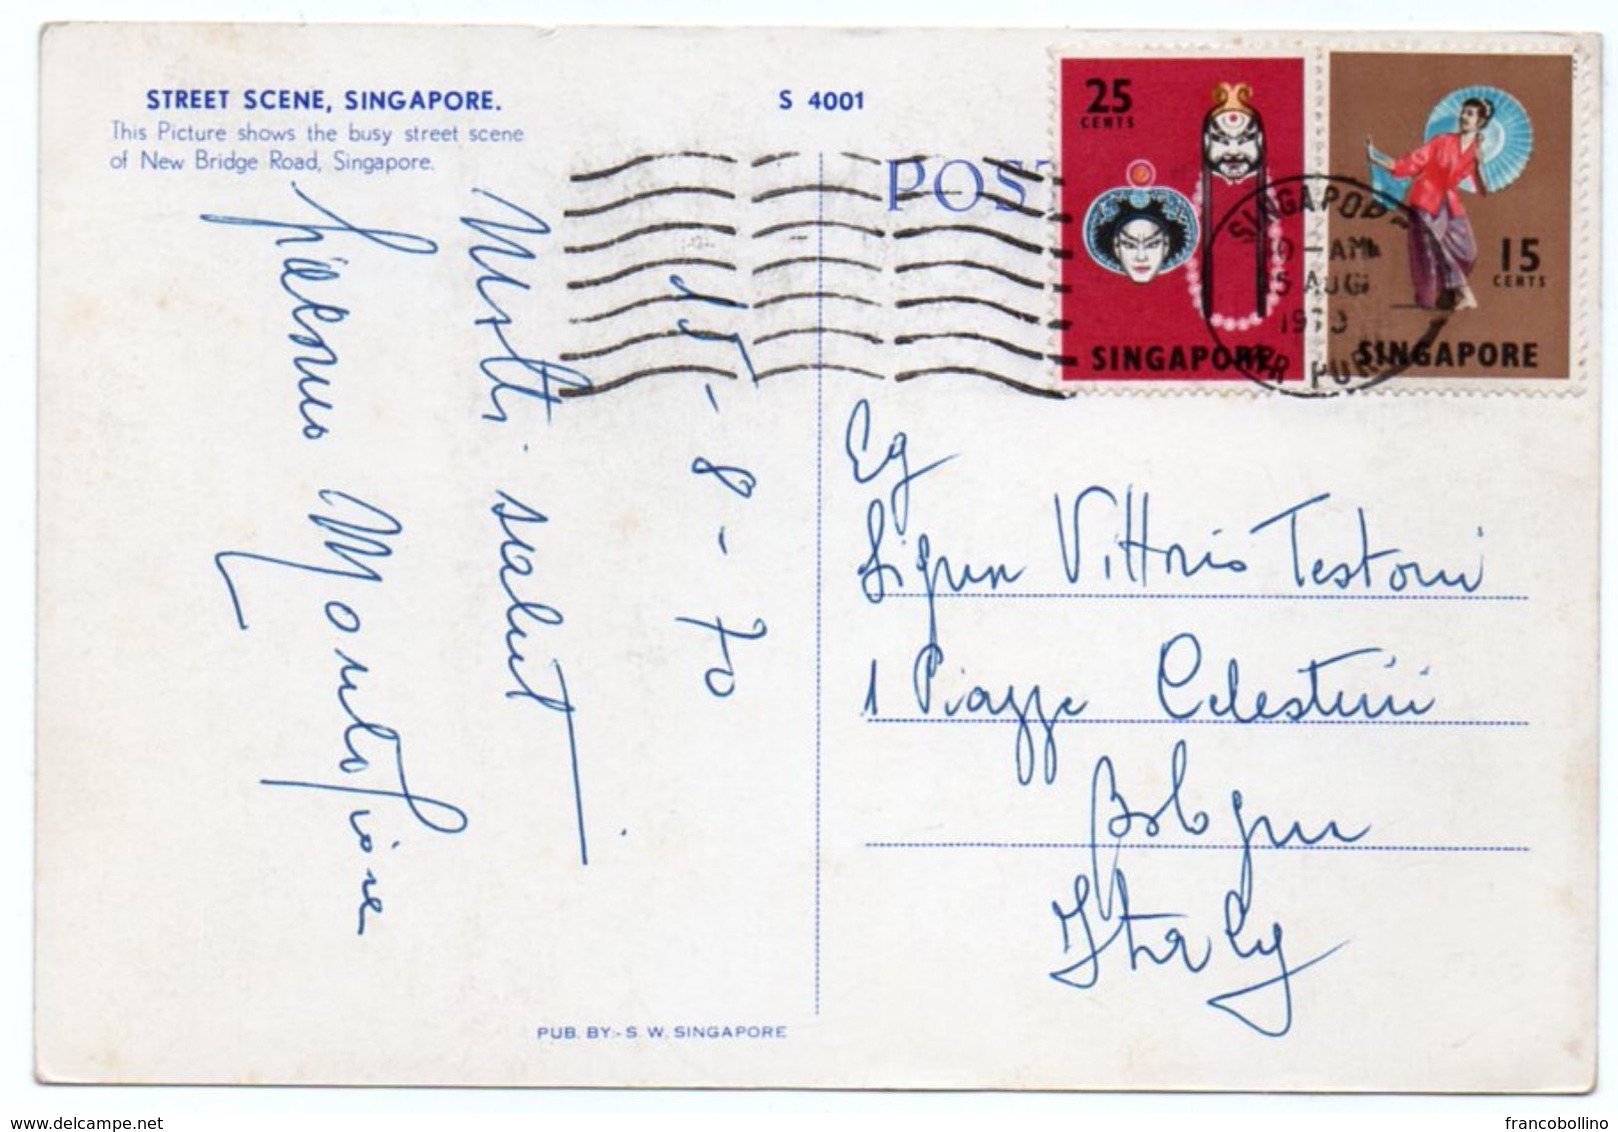 STREET SCENE, SINGAPORE.
This Picture shows the busy street scene
of New Bridge Road, Singapore.
S 4001
POST
25
CENTS
SINGAPORE
15
CENTS
SINGAPORE
SINGAPORE
AM
15 AUG
1970
15-8-70
Molti saluti
Eg
Signor Vittorio Testoni
1 Piazza Celestini
Bologna
Italy
PUB. BY:- S. W. SINGAPORE
www.delcampe.net
francobollino